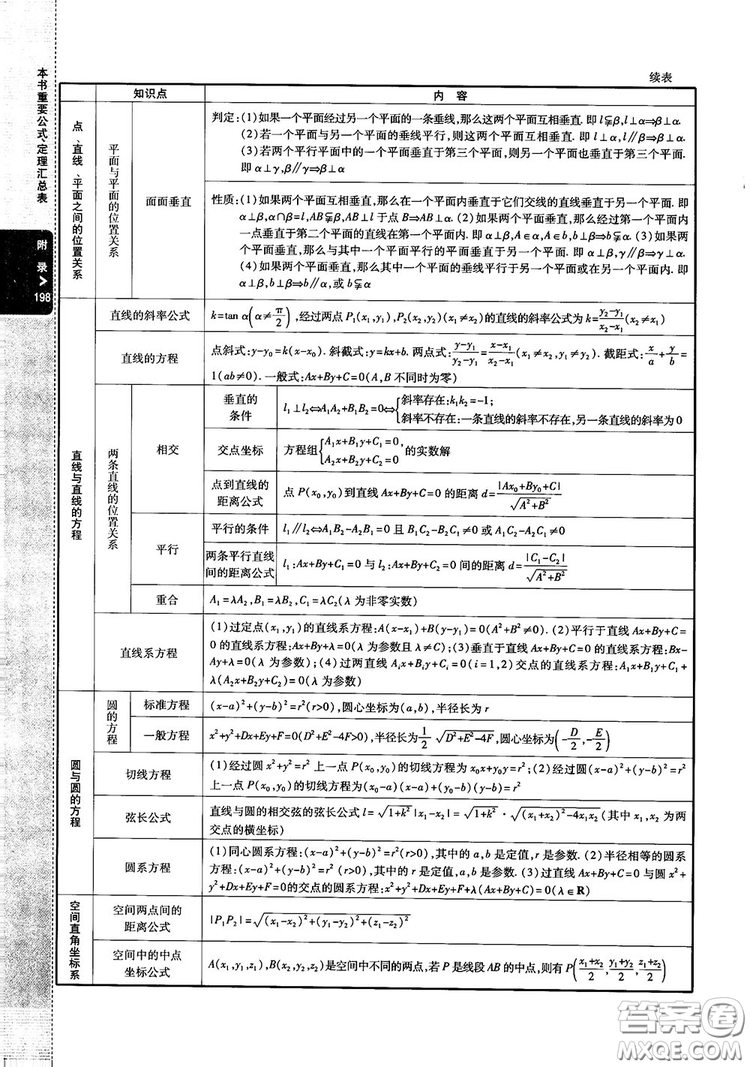 续表
本书重要公式、定理汇总表
附录
198
知识点 内容
点、直线、平面之间的位置关系
平面与平面的位置关系
面面垂直
判定:(1)如果一个平面经过另一个平面的一条垂线,那么这两个平面互相垂直.即l⫋β,l⊥α⇒β⊥α.
(2)若一个平面与另一个平面的垂线平行,则这两个平面互相垂直.即l⊥α,l∥β⇒β⊥α.
(3)若两个平行平面中的一个平面垂直于第三个平面,则另一个平面也垂直于第三个平面.
即α⊥γ,β∥γ⇒α⊥β
性质:(1)如果两个平面互相垂直,那么在一个平面内垂直于它们交线的直线垂直于另一个平面.即
α⊥β,α∩β=l,AB⫋β,AB⊥l于点B⇒AB⊥α.(2)如果两个平面垂直,那么经过第一个平面内
一点垂直于第二个平面的直线在第一个平面内.即α⊥β,A∈α,A∈b,b⊥β⇒b⫋α.(3)如果两
个平面互相垂直,那么与其中一个平面平行的平面垂直于另一个平面.即α⊥β,γ∥β⇒α⊥γ.
(4)如果两个平面垂直,那么其中一个平面的垂线平行于另一个平面或在另一个平面内.即
α⊥β,b⊥β⇒b∥α,或b⫋α
直线与直线的方程
直线的斜率公式
k=tan α(α≠π/2),经过两点P₁(x₁,y₁),P₂(x₂,y₂)(x₁≠x₂)的直线的斜率公式为k=(y₂-y₁)/(x₂-x₁)(x₁≠x₂)
直线的方程
点斜式:y-y₀=k(x-x₀).斜截式:y=kx+b.两点式:(y-y₁)/(y₂-y₁)=(x-x₁)/(x₂-x₁)(x₁≠x₂,y₁≠y₂).截距式:x/a+y/b=
1(ab≠0).一般式:Ax+By+C=0(A,B不同时为零)
两条直线的位置关系
相交
垂直的
条件
l₁⊥l₂⇔A₁A₂+B₁B₂=0⇔{斜率存在:k₁k₂=-1;
斜率不存在:一条直线的斜率不存在,另一条直线的斜率为0
交点坐标
方程组{A₁x+B₁y+C₁=0,
A₂x+B₂y+C₂=0 的实数解
点到直线的
距离公式
点P(x₀,y₀)到直线Ax+By+C=0的距离d=|Ax₀+By₀+C|/√(A²+B²)
平行
平行的条件
l₁∥l₂⇔A₁B₂-A₂B₁=0且B₁C₂-B₂C₁≠0或A₁C₂-A₂C₁≠0
两条平行直线
间的距离公式
l₁:Ax+By+C₁=0与l₂:Ax+By+C₂=0间的距离d=|C₁-C₂|/√(A²+B²)
重合
A₁=λA₂,B₁=λB₂,C₁=λC₂(λ为非零实数)
直线系方程
(1)过定点(x₁,y₁)的直线系方程:A(x-x₁)+B(y-y₁)=0(A²+B²≠0).(2)平行于直线Ax+By+C=
0的直线系方程:Ax+By+λ=0(λ为参数且λ≠C);(3)垂直于直线Ax+By+C=0的直线系方程:Bx-
Ay+λ=0(λ为参数);(4)过两直线Aᵢx+Bᵢy+Cᵢ=0(i=1,2)交点的直线系方程:A₁x+B₁y+C₁+
λ(A₂x+B₂y+C₂)=0(λ为参数)
圆与圆的方程
圆的方程
标准方程
(x-a)²+(y-b)²=r²(r>0),圆心坐标为(a,b),半径长为r
一般方程
x²+y²+Dx+Ey+F=0(D²+E²-4F>0),半径长为1/2√(D²+E²-4F),圆心坐标为(-D/2,-E/2)
切线方程
(1)经过圆x²+y²=r²上一点P(x₀,y₀)的切线方程为x₀x+y₀y=r²;(2)经过圆(x-a)²+(y-b)²=r²
上一点P(x₀,y₀)的切线方程为(x₀-a)(x-a)+(y₀-b)(y-b)=r²
弦长公式
直线与圆的相交弦的弦长公式l=√(1+k²)|x₁-x₂|=√(1+k²)·√((x₁+x₂)²-4x₁x₂)(其中x₁,x₂为两
交点的横坐标)
圆系方程
(1)同心圆系方程:(x-a)²+(y-b)²=r²(r>0),其中的a,b是定值,r是参数.(2)半径相等的圆系
方程:(x-a)²+(y-b)²=r²(r>0),其中的r是定值,a,b是参数.(3)过直线Ax+By+C=0与圆x²+
y²+Dx+Ey+F=0的交点的圆系方程:x²+y²+Dx+Ey+F+λ(Ax+By+C)=0(λ∈R)
空间直角坐标系
空间两点间的
距离公式
|P₁P₂|=√((x₁-x₂)²+(y₁-y₂)²+(z₁-z₂)²)
空间中的中点
坐标公式
A(x₁,y₁,z₁),B(x₂,y₂,z₂)是空间中不同的两点,若P是线段AB的中点,则有P((x₁+x₂)/2,(y₁+y₂)/2,(z₁+z₂)/2)
答案圈
MXQE.COM